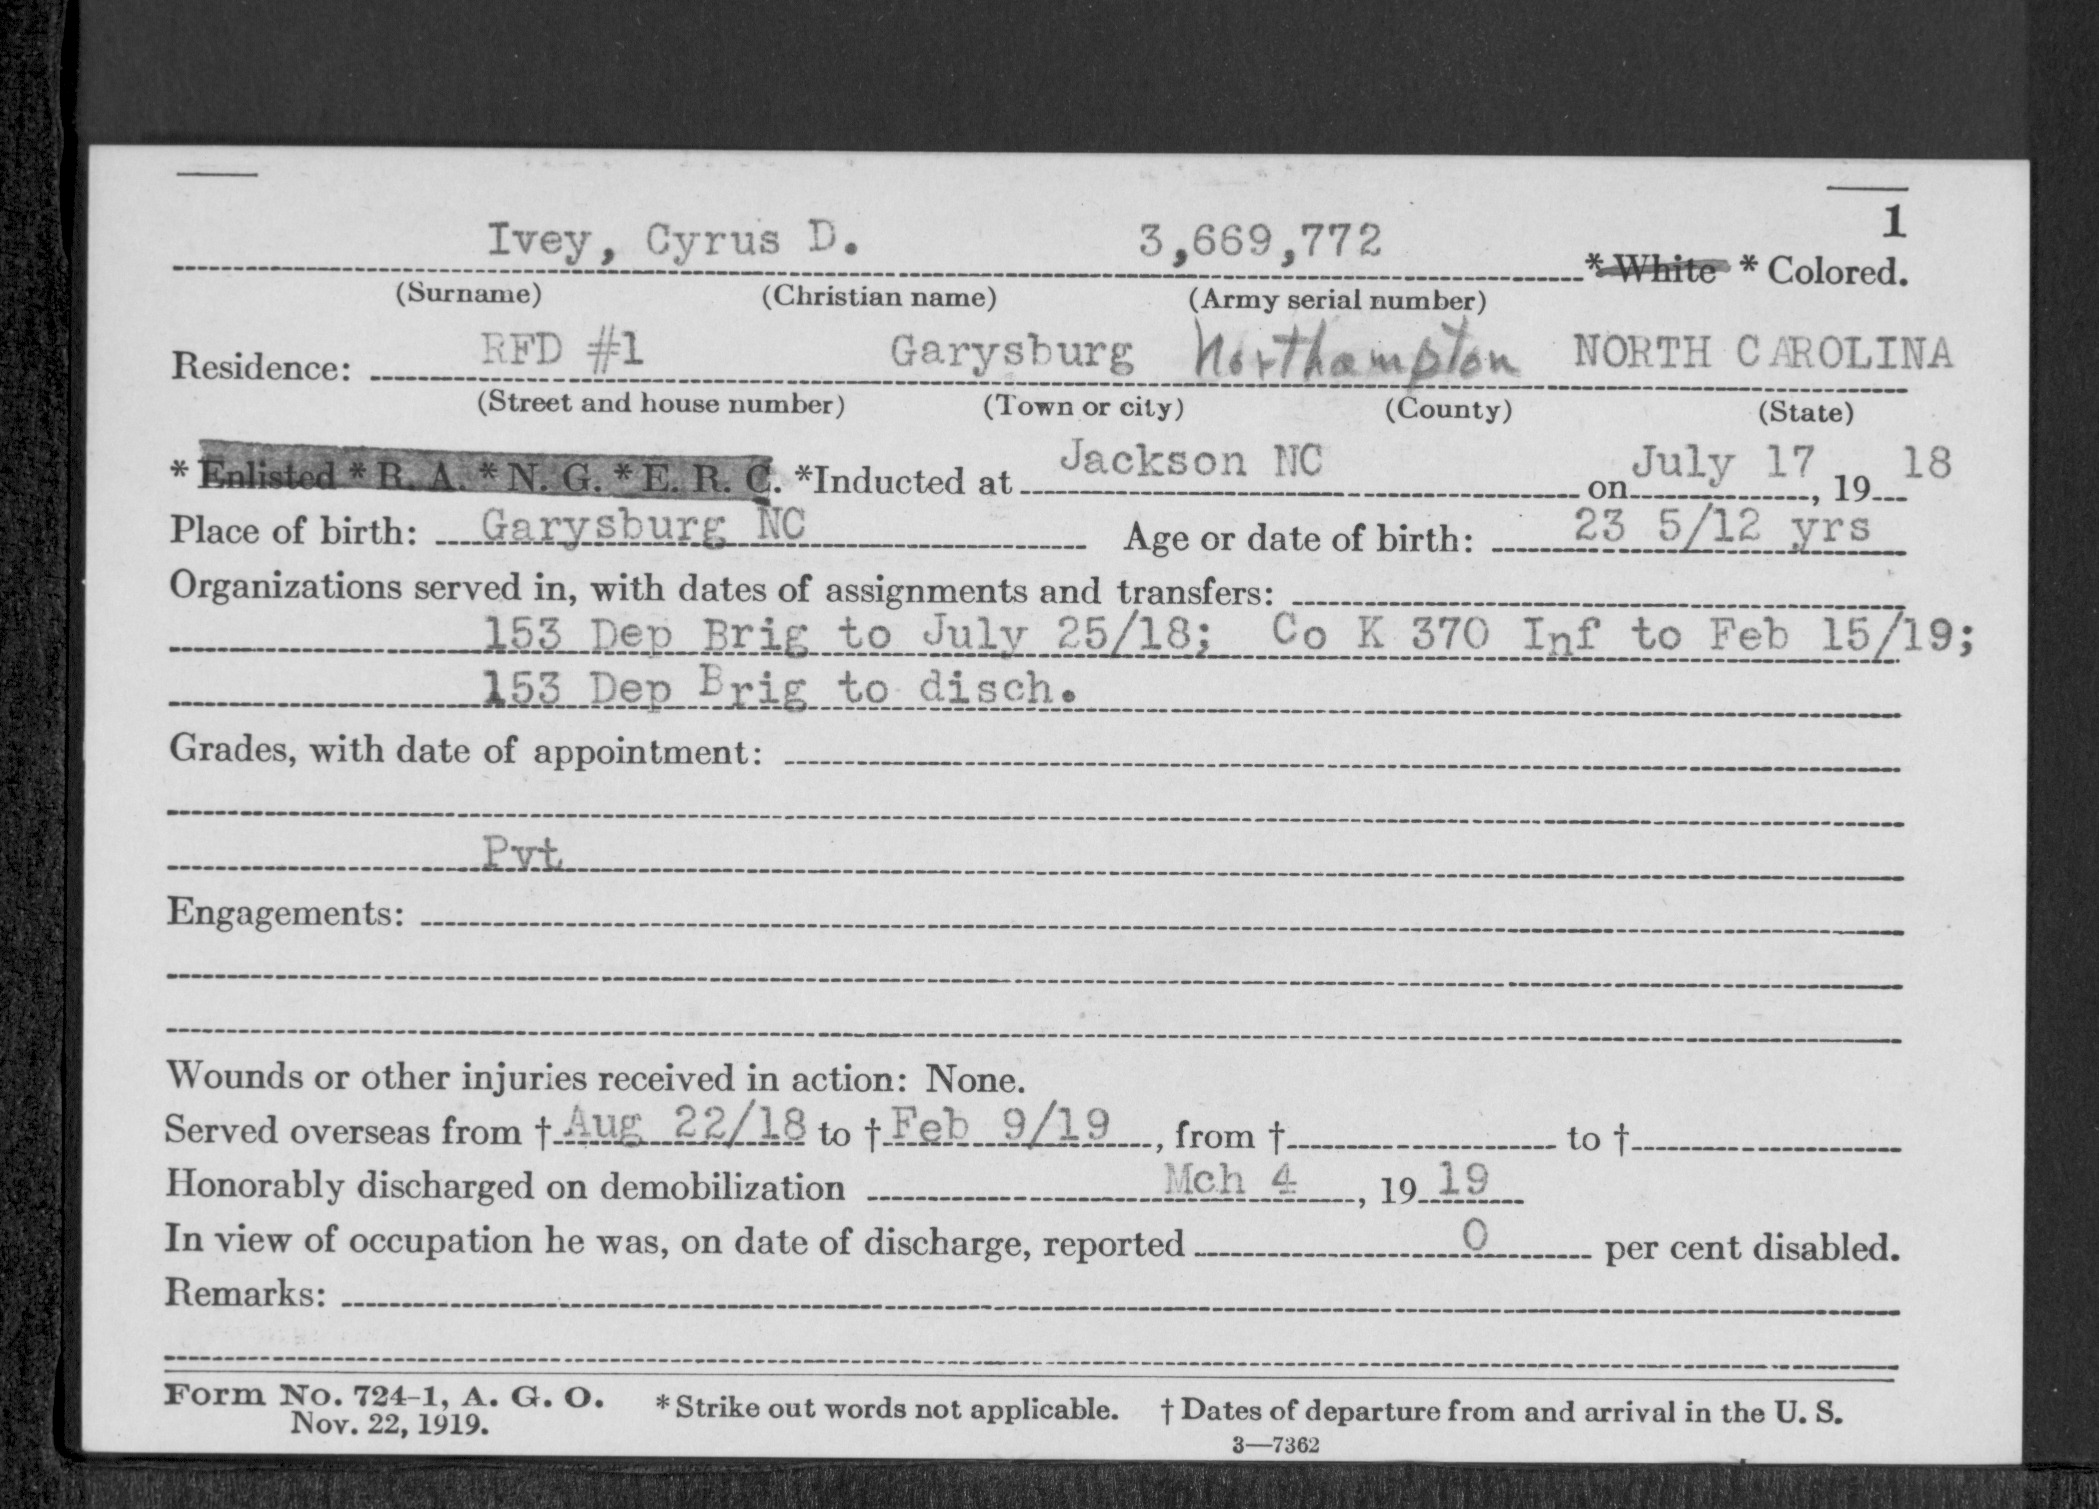 1
Ivey, Cyrus D. 3,669,772 * White * Colored.
(Surname) (Christian name) (Army serial number)
Residence: RFD #1 Garysburg Northampton NORTH CAROLINA
(Street and house number) (Town or city) (County) (State)
* Enlisted * R. A. * N. G. * E. R. C. *Inducted at Jackson NC on July 17, 19 18
Place of birth: Garysburg NC Age or date of birth: 23 5/12 yrs
Organizations served in, with dates of assignments and transfers:
153 Dep Brig to July 25/18; Co K 370 Inf to Feb 15/19;
153 Dep Brig to disch.
Grades, with date of appointment:
Pvt
Engagements:
Wounds or other injuries received in action: None.
Served overseas from † Aug 22/18 to † Feb 9/19, from † to †
Honorably discharged on demobilization Mch 4, 19 19
In view of occupation he was, on date of discharge, reported 0 per cent disabled.
Remarks:
Form No. 724-1, A. G. O. * Strike out words not applicable. † Dates of departure from and arrival in the U. S.
Nov. 22, 1919.
3—7362